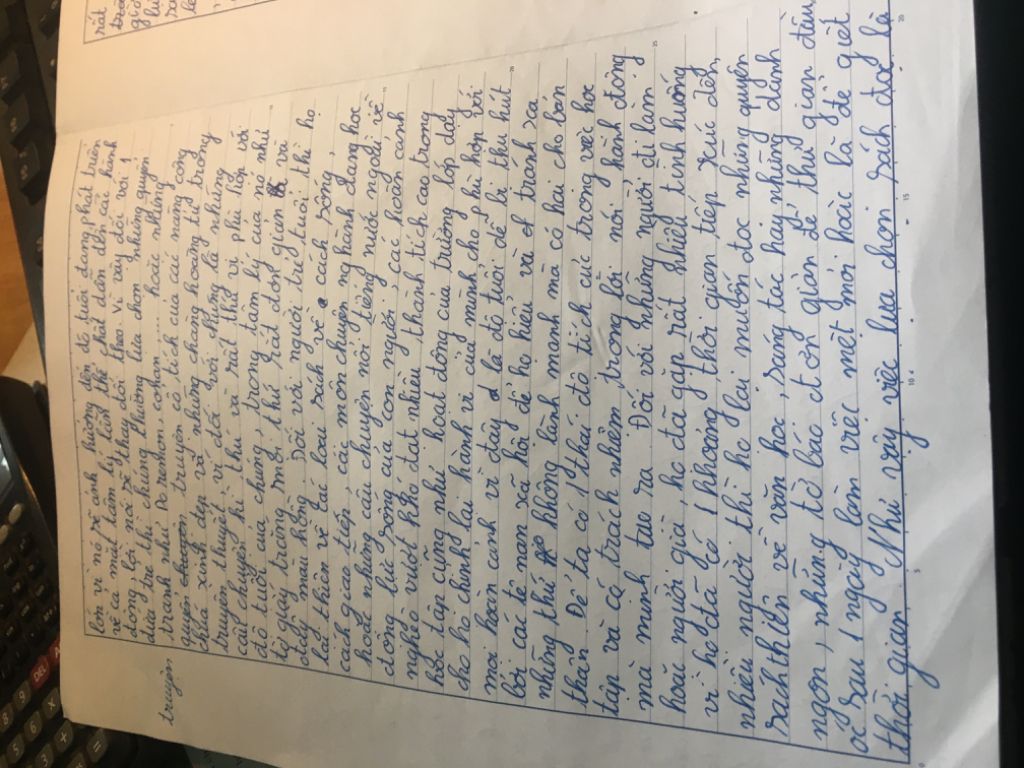 lớn vì nó sẽ ảnh hưởng đến độ tuổi đang phát triển
về cả mặt tâm lý lẫn thể chất dẫn đến cái hành
động, lời nói sẽ thay đổi theo. Vì vậy đối với 1
đứa trẻ thì chúng thường lựa chọn những quyển
truyện tranh như Doremon, conan..... hoặc những
quyển truyện cổ tích của các nàng công
chúa xinh đẹp và những chàng hoàng tử trong
truyền thuyết, vì đối với chúng là những
câu chuyện kì thú và rất thú vị phù hợp với
độ tuổi của chúng, trong tâm lý của nó như
tờ giấy trắng, mọi thứ rất đơn giản và
đầy màu hồng. Đối với người trẻ tuổi thì họ
lại thiên về các loại sách về cách sống,
cách giao tiếp, các môn chuyên ngành đang học
hoặc những câu chuyện nổi tiếng nước ngoài về
động lực sống của con người, các hoàn cảnh
nghèo vượt khó đạt nhiều thành tích cao trong
học tập cũng như hoạt động của trường lớp dạy
cho họ chỉnh lại hành vi của mình cho phù hợp với
mọi hoàn cảnh vì đây là độ tuổi dễ bị thu hút
bởi các tệ nạn xã hội để họ hiểu và tránh xa
những thứ không lành mạnh mà có hại cho bản
thân. Để ta có 1 thái độ tích cực trong việc học
tập và có trách nhiệm trong lời nói hành động
mà mình tạo ra. Đối với những người đi làm
hoặc người già, họ đã gặp rất nhiều tình huống
vì họ đã có 1 khoảng thời gian tiếp xúc đến
nhiều người thì họ lại muốn đọc những quyển
sách thiên về văn học, sáng tác hay những danh
ngôn, những tờ báo đơn giản để thư giãn đầu
óc sau 1 ngày làm việc mệt mỏi hoặc là để giết
thời gian. Như vậy việc lựa chọn sách đọc là